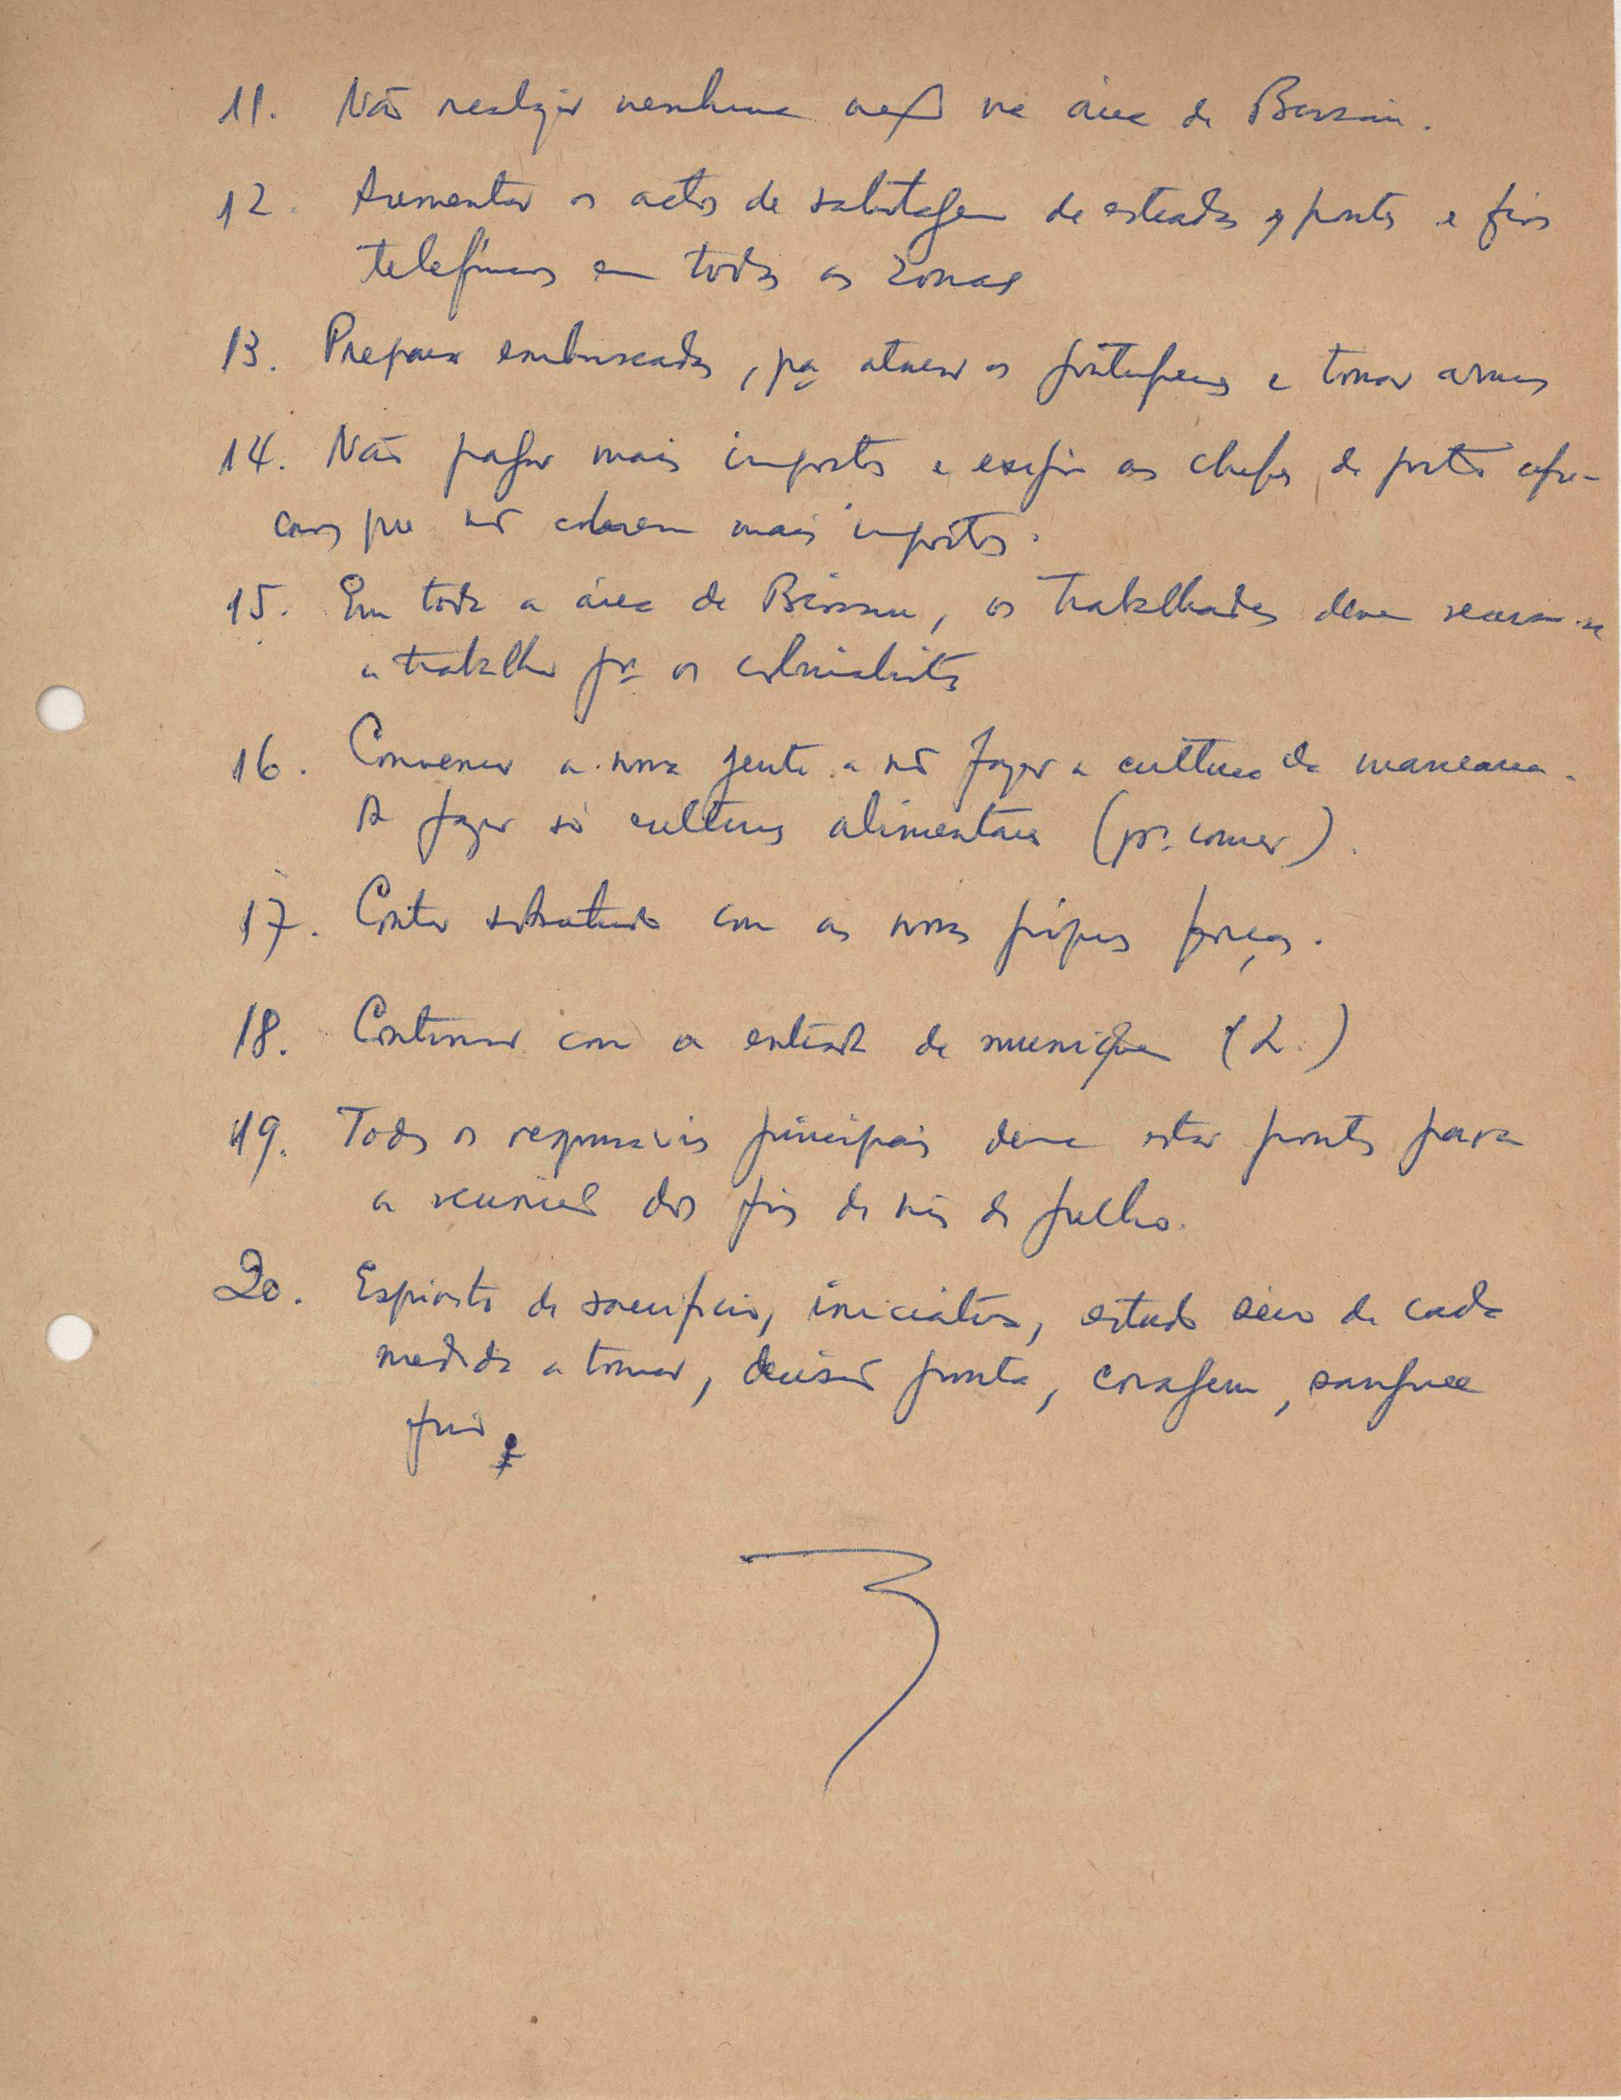 11. Não realizar nenhuma acção na área de Bissau.
12. Aumentar os actos de sabotagem de estradas, pontes e fios
telefónicos em todas as zonas
13. Preparar emboscadas, pª atacar os portugueses e tomar armas
14. Não pagar mais impostos e exigir aos chefes de posto afri-
canos que não cobrem mais impostos.
15. Em toda a área de Bissau, os trabalhadores devem recusar-se
a trabalhar pª os colonialistas
16. Convencer a nossa gente a não fazer a cultura da mancarra.
A fazer só culturas alimentares (pª comer).
17. Contar sobretudo com as nossas próprias forças.
18. Continuar com a entrada de munições (L.)
19. Todos os responsáveis principais devem estar prontos para
a reunião dos fins do mês de Julho.
20. Espírito de sacrifício, iniciativa, estudo sério de cada
medida a tomar, decisão pronta, coragem, sangue
frio.